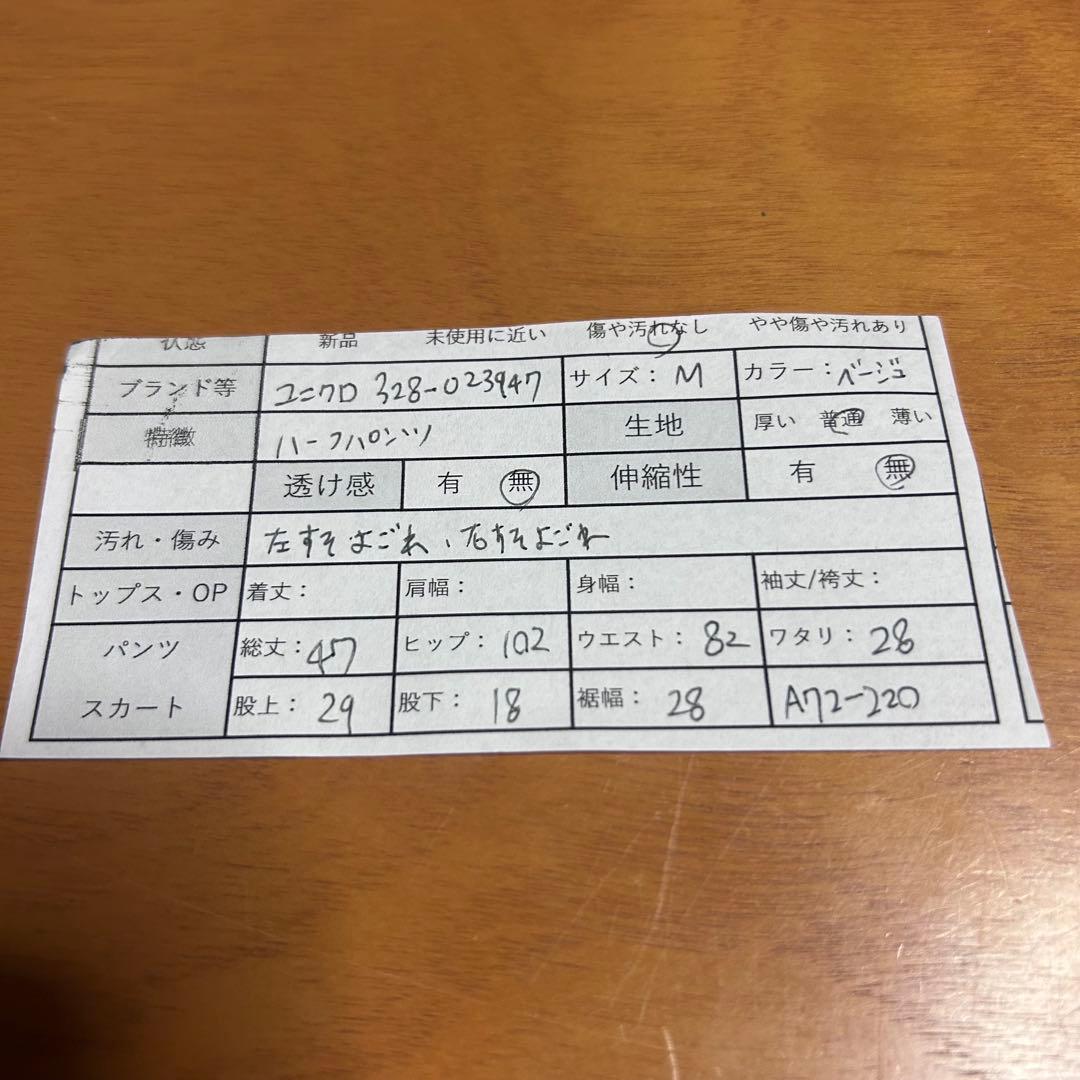 状態 新品 未使用に近い 傷や汚れなし やや傷や汚れあり
ブランド等 ユニクロ 328-023947 サイズ: M カラー: ベージュ
特徴 ハーフパンツ 生地 厚い 普通 薄い
透け感 有 無 伸縮性 有 無
汚れ・傷み 左すそよごれ、右すそよごれ
トップス・OP 着丈: 肩幅: 身幅: 袖丈/袴丈:
パンツ 総丈: 47 ヒップ: 102 ウエスト: 82 ワタリ: 28
スカート 股上: 29 股下: 18 裾幅: 28 A72-220